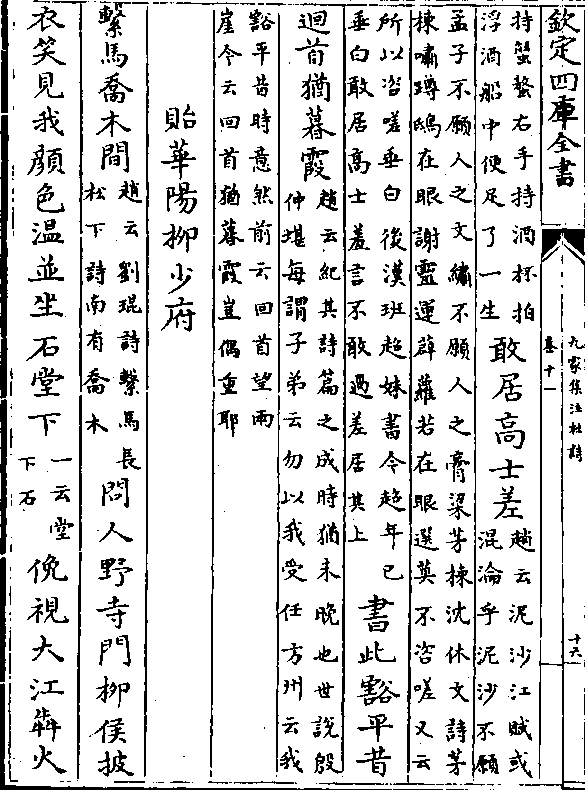 欽定四庫全書
九家集注杜詩
卷十一
十六
持蟹螯右手持酒杯拍
浮酒船中便足了一生
敢居高士差
趙云泥沙江賦或
混淪乎泥沙不願
孟子不願人之文繡不願人之膏梁茅棟沈休文詩茅
棟嘯蹲鴟在眼謝靈運薜蘿若在眼選莫不咨嗟又云
所以咨嗟垂白後漢班超妹書令超年已
垂白敢居高士差言不敢過差居其上
書此豁平昔
迴首猶暮霞
趙云紀其詩篇之成時猶未晚也世說殷
仲堪每謂子弟云勿以我受任方州云我
豁平昔時意然前云回首望兩
崖今云回首猶暮霞豈偶重耶
貽華陽柳少府
繫馬喬木間
趙云劉琨詩繫馬長
松下詩南有喬木
問人野寺門柳侯披
衣笑見我顔色溫並坐石堂下
一云堂
下石
俛視大江犇火